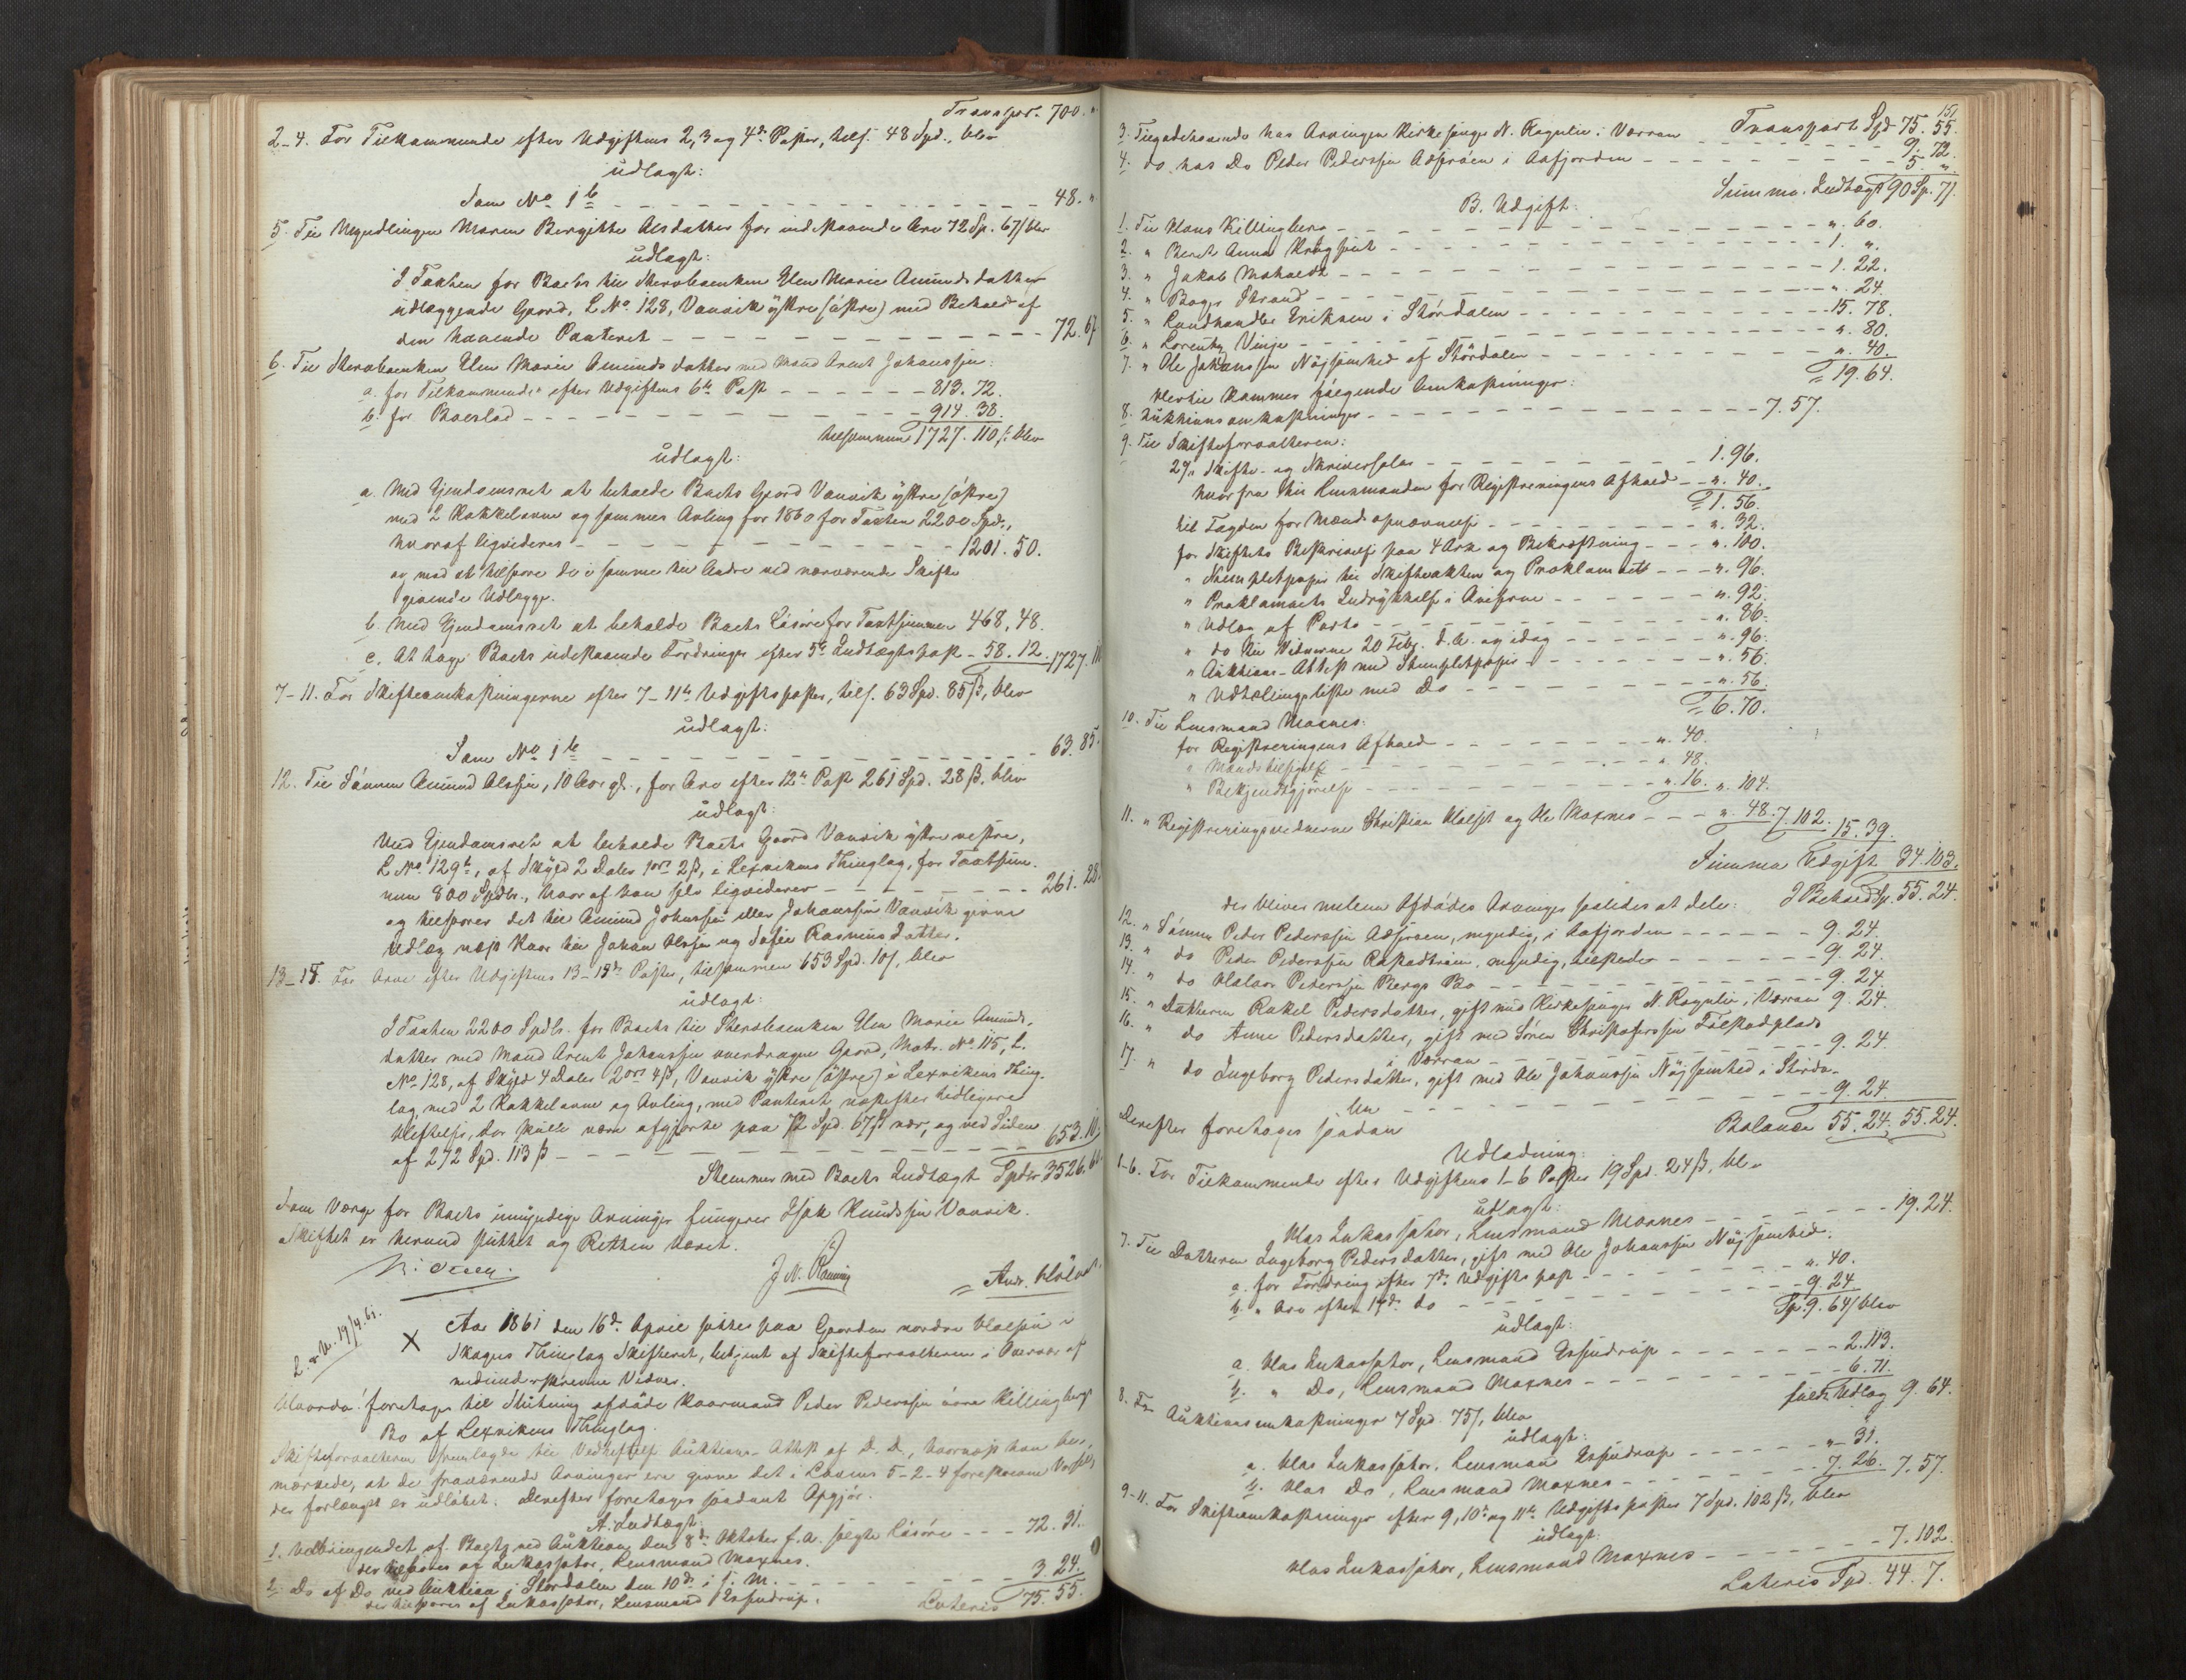 Transport. 700. "
2-4. For Tilkommende efter Udgiftens 2, 3 og 4de Poster, tils. 48 Spd., blev
udlagt:
Som No 1 b - - - 48. "
5. Til Myndlingen Maren Bergitte Olsdatter for indestaaende Arv 72 Sp. 67 ß blev
udlagt:
I Taxten for Boets til Stervboenken Elen Marie Amundsdatter
udlæggende Gaard, L. No. 128, Vanvik ÿttre (östre) med Behold af
den havende Panteret - - - 72. 67
6. Til Stervboenken Elen Marie Amundsdatter med Mand Arent Johanssen:
a. for Tilkommende efter Udgiftens 6te Post - - - 813. 72.
b. for Boeslod - - - 914. 38.
tilsammen 1727. 110 ß. blev
udlagt:
a. Med Eiendomsret at beholde Boets Gaard Vanvik ÿttre (östre)
med 2 Kakkelovne og sammes Avling for 1860 for Taxten 2200 Spd.,
hvoraf ligvideres - - - 1201. 50.
og mod at tilsvare de i samme til Andre ved nærværende Skifte
givende Udlægge.
b. Med Eiendomsret at beholde Boets Lösöre for Taxtsummen 468. 48.
c. At tage Boets udestaaende Fordringer efter 5te Indtægtspost - 58. 12. 1727. 110
7-11. For Skifteomkostningerne efter 7-11te Udgiftsposter, tils. 63 Spd. 85 ß, blev
udlagt:
Som No 1 b - - - 63. 85.
12. Til Sönnen Amund Olsen, 10 Aar gl., for Arv efter 12te Post 261 Spd. 28 ß. blev
udlagt:
Med Eiendomsret at beholde Boets Gaard Vanvik ÿttre vestre,
L No. 129 b, af Skÿld 2 Daler 1 ort 2 ß, i Lexvikens Thinglag, for Taxtsum-
men 800 Spdlr., hvoraf han selv ligviderer - - - 261. 28.
og tilsvarer det til Amund Johnssen eller Johanssen Vanvik givne
Udlæg næst Kaar til Johan Olsen og Sofie Rasmusdatter.
13-15. For Arv efter Udgiftens 13-15de Poster, tilsammen 653 Spd. 10 ß, blev
udlagt:
I Taxten 2200 Spdlr. for Boets til Stervboenken Elen Marie Amunds-
datter med Mand Arent Johanssen overdragne Gaard, Matr. No. 115, L.
No. 128, af Skÿld 4 Daler 2 ort 4 ß, Vanvik ÿttre (östre) i Lexvikens Thing-
lag med 2 Kakkelovne og Avling, med Panteret næstefter tidligere
Heftelse, der skulle være afgjorte paa 72 Spd. 67 ß nær, og ved Siden
af 272 Spd. 113 ß - - - 653. 10
Stemmer med Boets Indtægt Spdlr 3526.
Som Værge for Boets umÿndige Arvinger fungerer Isak Knudssen Vanvik.
Skiftet er hermed sluttet og Retten hævet.
J. N. Ranning Andr.
L. a. U. 19/4. 61.
X Aar 1861 den 16de April sattes paa Gaarden nordre Halsen i
Skogns Thinglag Skifteret, betjent af Skifteforvalteren i Overvær af
medunderskrevne Vidner.
Hvorda: foretoges til Slutning afdöde Kaarmand Peder Pederssen övre Killingberg
Bo af Lexvikens Thinglag.
Skifteforvalteren fremlagde til Vedheftelse Auktions-Attest af D. D., hvornæst han be-
mærkede, at de fraværende Arvinger ere givne det i Lovens 5-2-4 foreskrevne Varsel,
der forlængst er udlöbet. Derefter foretoges saadant Opgjör.
A. Indtægt:
1. Udbringendet af Boets ved Auktion den 8de Oktober f. A. solgte Lösöre - - - 72. 31.
der tilsvares af Inkassator, Lensmand Moxnes.
2. Do af Do ved Auktion i Stördalen den 10de i s. M. - - - 3. 24.
der tilsvares af Inkassator, Lensmand Essendrup.
Lateris 75. 55.
151
Transport Spd 75. 55.
3. Tilgodehavende hos Arvingen Kirkesanger N. Ragnlie i Værran - - - 9. 72.
4. do hos Do Peder Pederssen Adsröen i Aafjorden - - - 5 "
Summa Indtægt 90 Sp. 71.
B. Udgift:
1. Til Hans Killingberg - - - ". 60.
2. " Beret Anna Krogset - - - 1. ".
3. " Jakob Moholdt - - - 1. 22.
4. " Borger Strand - - - ". 24.
5. " Landhandler Eriksen i Stördalen - - - 15. 78.
6. " Lorentz Vinje - - - ". 80.
7. " Ole Johanssen Nöjsomhed af Stördalen - - - ". 40.
= 19. 64.
Hertil kommer fölgende Omkostninger:
8. Auktionsomkostninger - - - 7. 57.
9. Til Skifteforvalteren:
2% Skifte- og Skriversalær - - - 1. 96.
hvorfra til Lensmanden for Registreringens Afhold - - ". 40.
= 1. 56.
til Fogden for Mændsopnævnelse - - - ". 32.
for Skiftets Beskrivelse paa 4 Ark og Bekræftning - - - ". 100.
" Stempletpapir til Skifteakten og Proklamaet - - - ". 96.
" Proklamaets Indrÿkkelse i Aviserne - - - ". 92.
" Udlæg af Porto - - - ". 86.
" do til Vidnerne 20 Febr. d. A. og idag - - - ". 96.
" Auktions-Attest med Stempletpapir - - - ". 56.
" Udtællingsliste med Do - - - ". 56.
= 6. 70.
10. Til Lensmand Moxnes:
for Registreringens Afhold - - - ". 40.
" Mænds Tilsigelse - - - ". 48.
" Bekjendtgjörelse - - - ". 16. ". 104.
11. " Registreringsvidnerne Christian Holset og Ole Moxnes - - - ". 48. 7. 102. 15. 39.
Summa Udgift 34. 103.
I Behold Sp. 55. 24.
der bliver mellem Afdödes Arvinger saaledes at dele:
12. " Sönnen Peder Pederssen Adsröen, mÿndig, i Aafjorden - - - 9. 24.
13. " do Peder Pederssen Rostadtröen, mÿndig, tilstede - - - 9. 24.
14. " do Halvor Pederssen Bergs Bo - - - 9. 24.
15. " Datteren Rakel Pedersdatter, gift med Kirkesanger N. Ragnlie i Værran 9. 24.
16. " do Anne Pedersdatter, gift med Sören Christoferssen Fölstadplads
i Værran - - - 9. 24.
17. " do Ingeborg Pedersdatter, gift med Ole Johanssen Nöjsomhed i Störda-
len - - - 9. 24.
Balance 55. 24. 55. 24.
Derefter foretoges saadan
Udlodning:
1-6. For Tilkommende efter Udgiftens 1-6 Poster 19 Spd. 24 ß, blev
udlagt:
Hos Inkassator, Lensmand Moxnes - - - 19. 24.
7. Til Datteren Ingeborg Pedersdatter, gift med Ole Johanssen Nöjsomhed:
a. for Fordring efter 7de Udgiftspost - - - ". 40.
b. " Arv efter 17de do - - - 9. 24
Sp. 9. 64 ß blev
udlagt:
a. Hos Inkassator, Lensmand Essendrup - - - 2. 113.
b. " Do, Lensmand Moxnes - - - 6. 71.
fuldt Udlæg 9. 64.
8. For Auktionsomkostninger 7 Spd. 57 ß, blev
udlagt:
a. Hos Inkassator, Lensmand Essendrup - - - " 31.
b. Hos Do, Lensmand Moxnes - - - 7. 26. 7. 57.
9-11. For Skifteomkostninger efter 9, 10de og 11te Udgiftsposter 7 Spd. 102 ß, blev
udlagt:
Hos Inkassator, Lensmand Moxnes - - - 7. 102.
Lateris Spd. 44. 7.